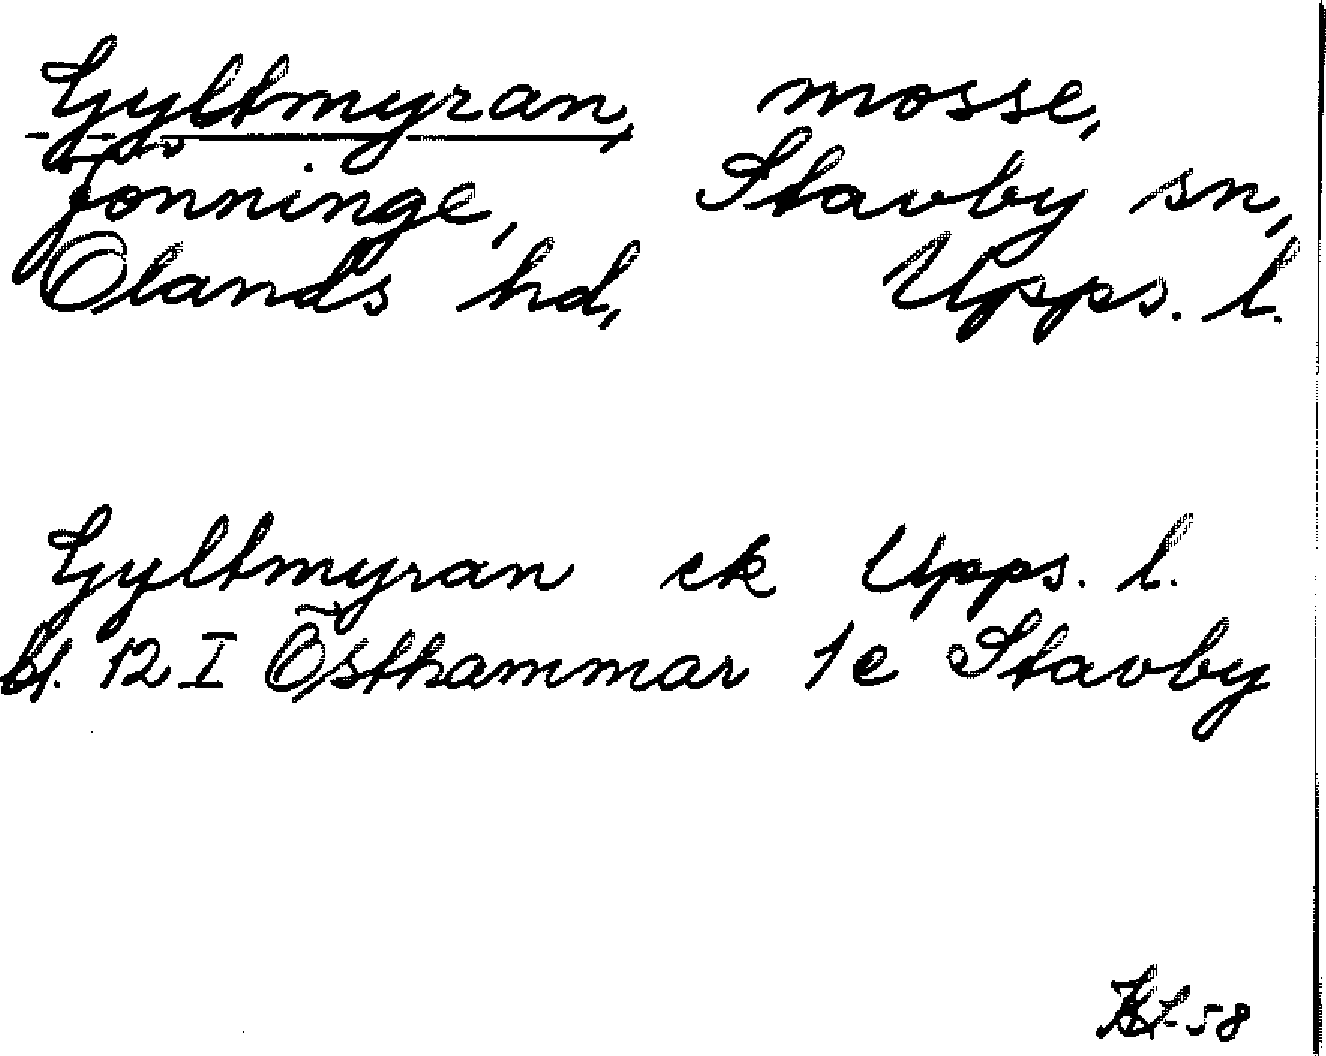 Gyltmyran, mosse,
Jönninge, Stavby sn,
Olands hd, Upps. l.
Gyltmyran ek Upps. l.
bl. 12 I Östhammar 1e Stavby
-58